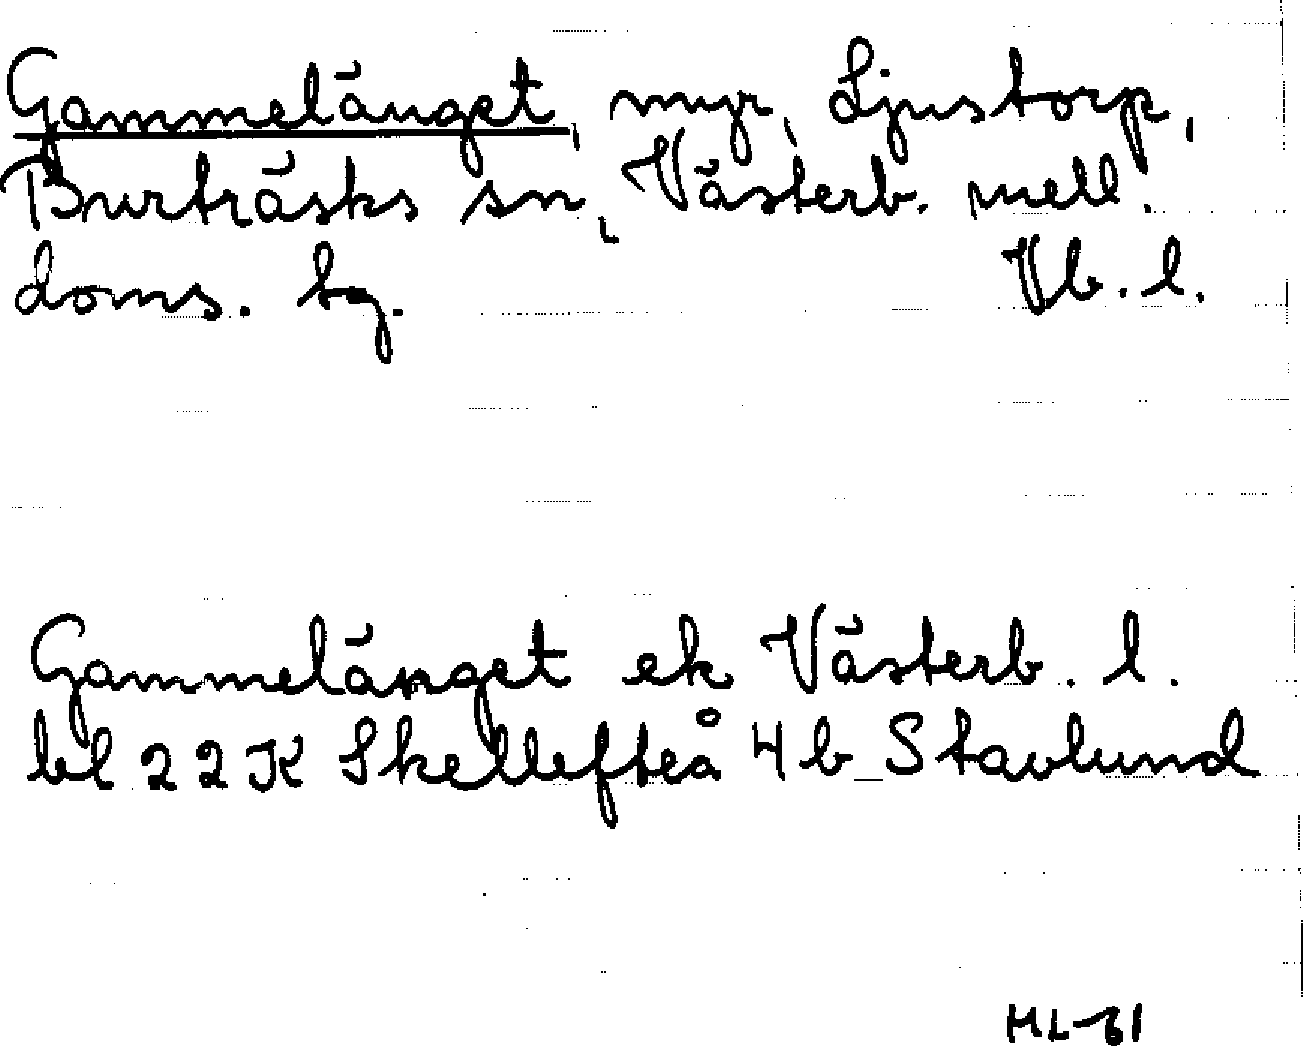 Gammelänget, myr, Ljustorp,
Burträsks sn, Västerb. mell.
doms. tg. Vb. l.
Gammelänget ek Västerb. l.
bl 22K Skellefteå 4b Stavlund
HL-61